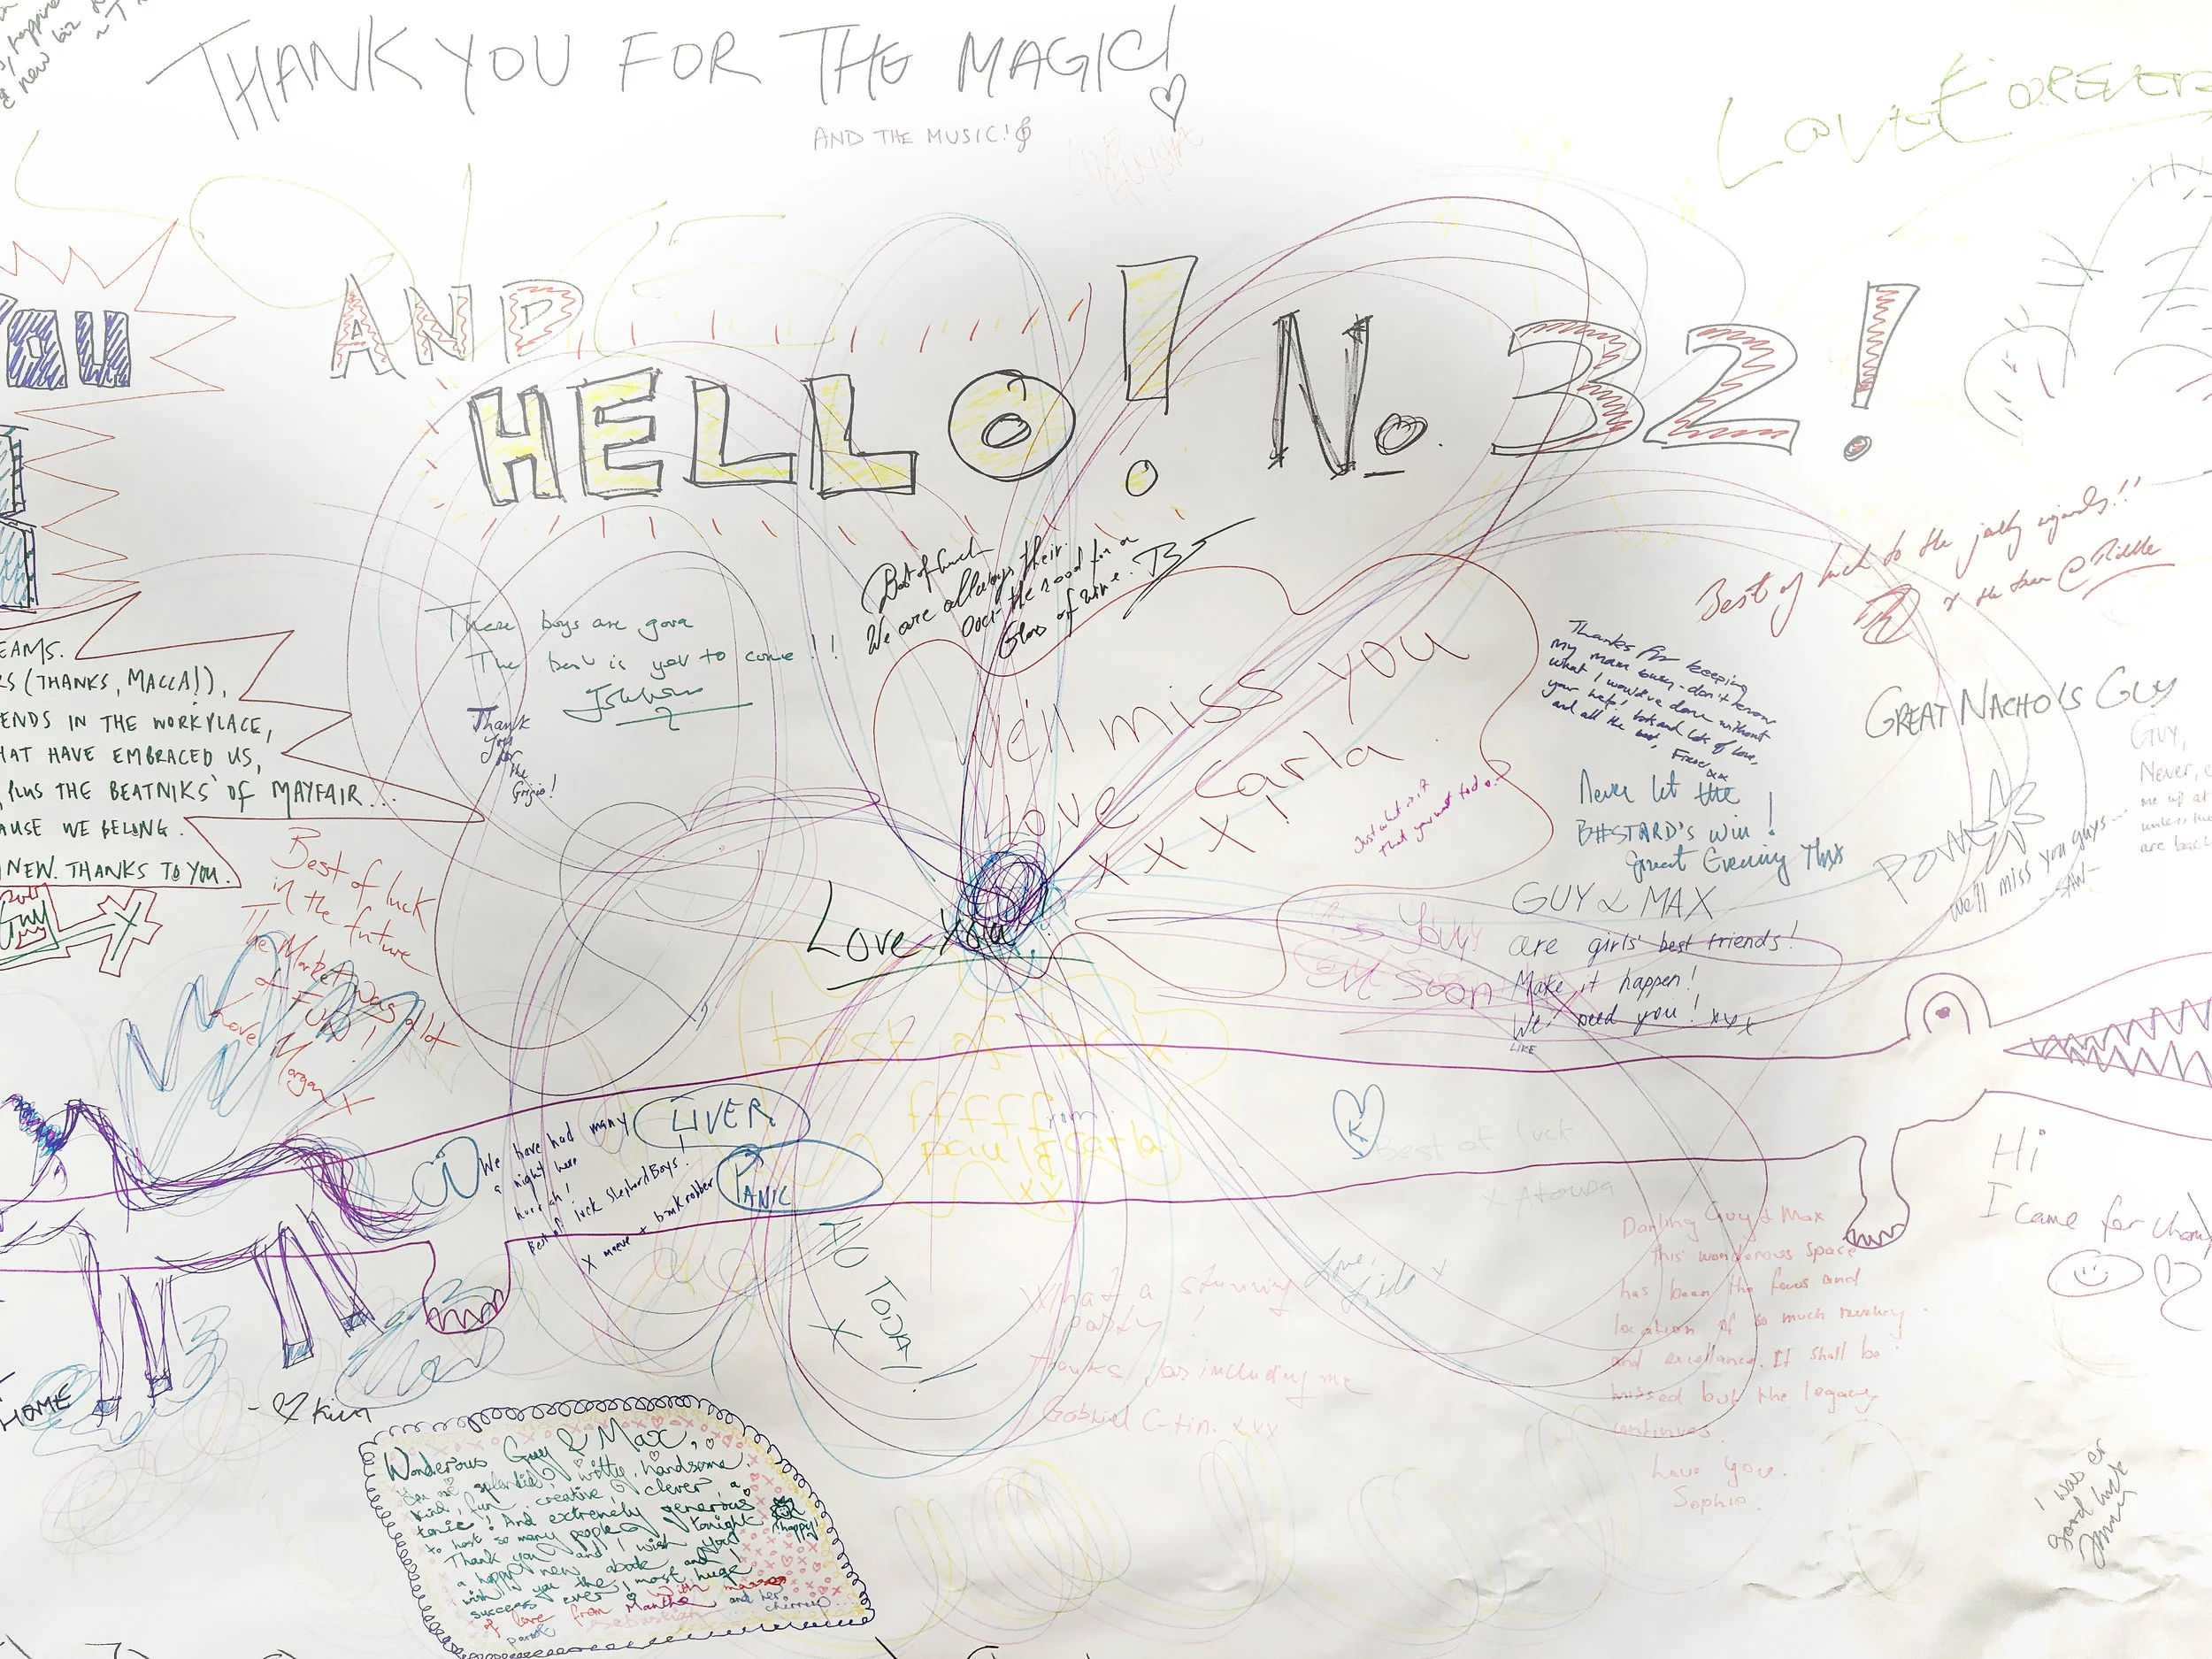 THANK YOU FOR THE MAGIC!
AND THE MUSIC!
LOVE FOREVER
AND
HELLO! No. 32!
YOU
Best of luck
We are allways their
Over the road for a
Glass of wine.
These boys are gora
The best is yet to come!!
Thank
you
for
the
Grigio!
We'll miss you
love Carla
x x x
Just what is it
that you want to do
Best of luck to the jolly wizards!!
x the team @
Thanks for keeping
my man busy - don't know
what I would've done without
your help! lots and lots of love,
and all the best,
xx
GREAT NACHO'S GUY
Never let the
B#STARD'S win!
Great Evening Thx
POW
We'll miss you guys
GUY,
Never,
me up at
unless the
are back
EAMS.
RS (THANKS, MACCA!),
ENDS IN THE WORKPLACE,
HAT HAVE EMBRACED US,
PLUS THE BEATNIKS OF MAYFAIR...
AUSE WE BELONG.
NEW. THANKS TO YOU.
Guy
Best of luck
in the future
The Market was a lot
of FUN!
Love
Morgan X
Love You
GUY & MAX
are girls' best friends!
Make it happen!
We need you! xxx
LIKE
Miss You!
Soon
best of luck
ffffffrom
paul & Carla
xx
We have had many
a night here
hurrah!
Best of luck Shepherd Boys!
X maeve + bankrobber
LIVER
PANIC
Best of luck
X Atousa
Hi
I came for
Darling Guy & Max
this wonderous space
has been the focus and
location of so much revelry
and excellence. It shall be
missed but the legacy
continues.
Love you.
Sophie.
What a stunning
party!
Thanks for including me
Gabriel C-tin. xxx
Love,
x
X
HOME
- Kim
Wonderous Guy & Max,
You are splendid, witty, handsome,
kind, fun, creative, clever, a
tonic! And extremely generous
to host so many people tonight
Thank you and I wish you
a happy new abode and I
wish you the most huge
success ever! With masses
of love from Mantha and her
parrot Sebastian
happy!
I was er
Good luck